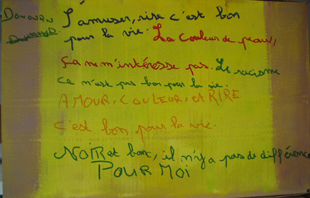 S'amuser, rire c'est bon
pour la vie. La couleur de peau,
ça ne m'intéresse pas. Le racisme
ça n'est pas bon pour la vie.
AMOUR, COULEUR, et RIRE
c'est bon pour la vie.
NOIR et banc, il n'y a pas de différence
POUR MOI